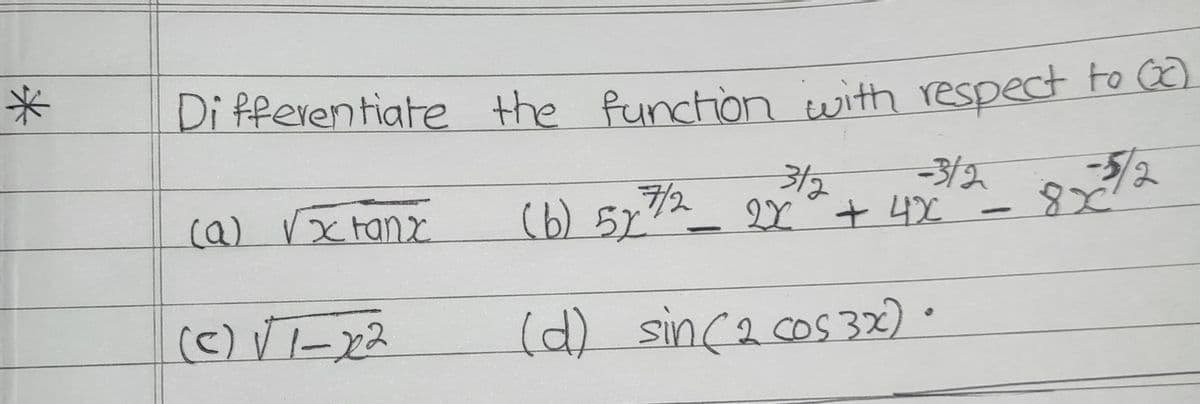 * Differentiate the function with respect to (x)
(a) √x tanx (b) 5x^7/2 - 2x^3/2 + 4x^-3/2 - 8x^-5/2
(c) √1-x2 (d) sin(2 cos3x).